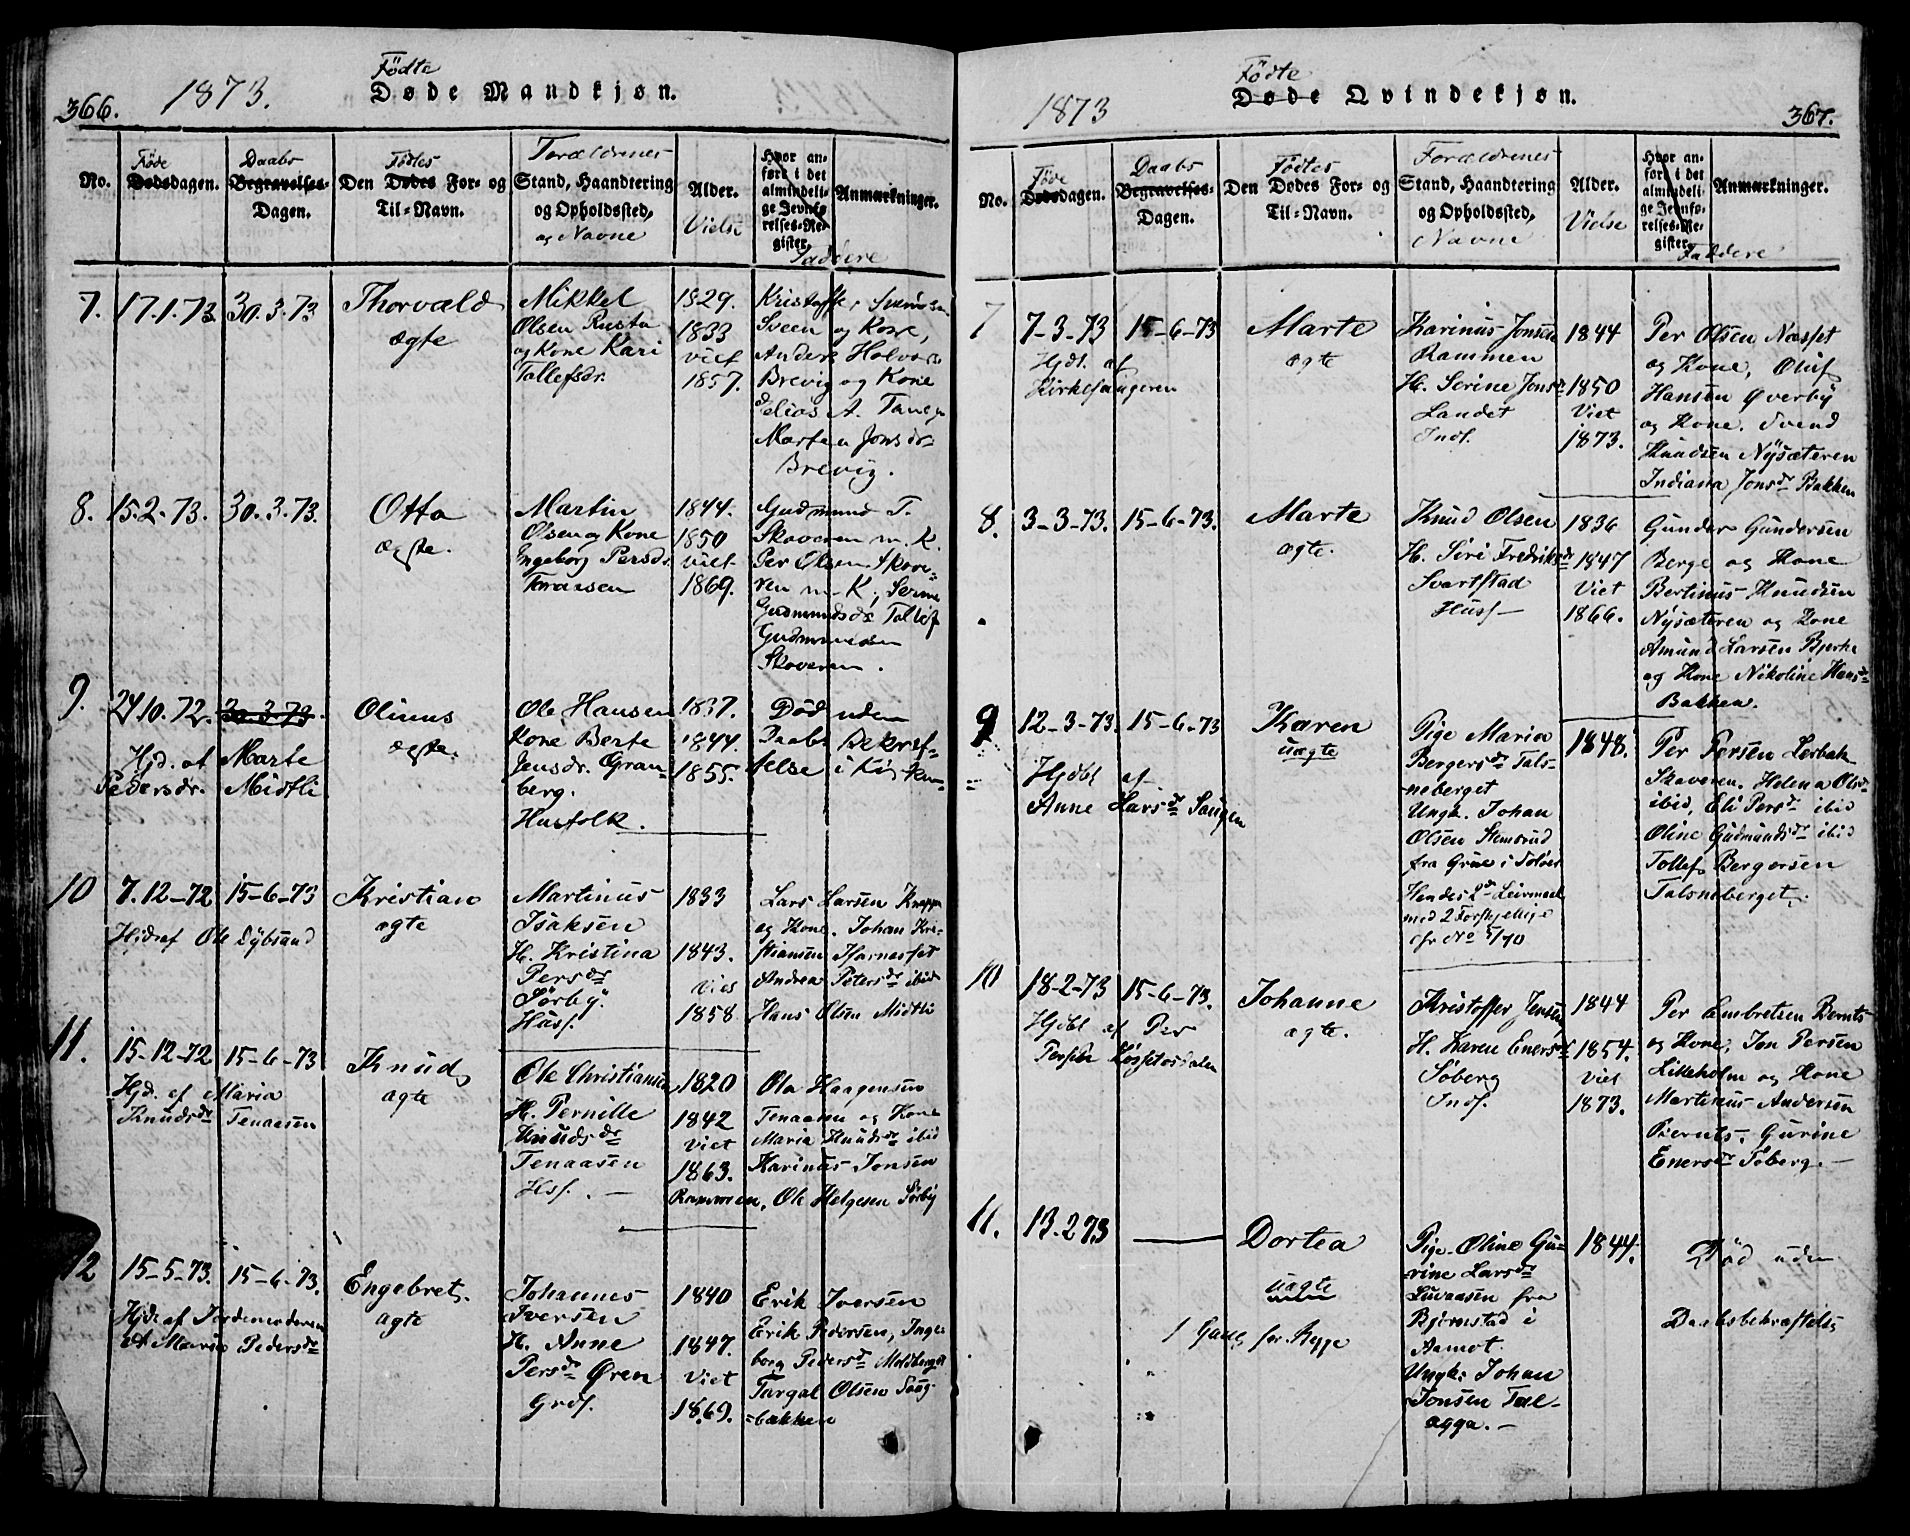 366. 1873. Fødte
Døde Mandkjøn.
No.
Føde
Dødsdagen.
Daabs
Begravelses-
Dagen.
Fødtes
Den Dødes For- og
Til-Navn.
Forældrenes
Stand, Haandtering
og Opholdssted,
og Navne
Alder.
Vielse
Hvor an-
ført i det
almindeli-
ge Jevnfø-
relses-Re-
gister.
Anmærkninger.
Faddere
7. 17.1.73. 30.3.73
Thorvald
ægte
Mikkel
Olsen Rusta
og Kone Kari
Tollefsdr.
1829.
1833
viet
1857.
Kristoffer
Sveen og Kone,
Anders Halvors
Brevig og Kone
Elias A.
Marten Jonsdr
Brevig.
8. 15.2.73. 30.3.73.
Otto
ægte.
Martin
Olsen og Kone
Ingeborg Persdr.
Tenaasen
1844.
1850
viet
1869.
Gudmund T.
Skoveren m. K.
Per Olsen Skove-
ren m. K.,
Gudmundsdr Tollef
Gudmundsen
Skoveren.
9. 24.10.72. 30.3.73.
Hjd. af Marte
Pedersdr. Midtli
Olinus
ægte.
Ole Hansen
Kone Berte
Jensdr. Gran-
berg.
Husfolk.
1837.
1844.
1855.
Død uden
Daabs Bekræf-
telse i Kirken
10 7.12-72 15-6-73
Hjd af Ole Dybsand
Kristian
ægte
Martinus
Isaksen
H. Kristina
Persdr
Sørby.
Husf.
1833
1843.
Viet
1858
Lars Larsen Knappe
og Kone. Johan Kri-
stiansen
Andrea Petersdr ibid
Hans Olsen Midtli
11. 15-12-72 15-6-73
Hjd. af Maria
Knudsdr Tenaasen
Knud
ægte
Ole Christiansen
H. Pernille
Knudsdr
Tenaasen
Hsf. -
1820
1842
Viet
1863.
Ola Haagensen
Tenaasen og Kone
Maria Knudsdr ibid
Karinus Jonsen
Rammen, Ole Helgesen Sørby
12 15-5-73. 15-6-73.
Hjd. af Jordemoderen
Maria Pedersdr
Engebret.
ægte
Johannes
Iversen
H. Anne
Persdr Øren
Grdf.
1840
1847.
Viet
1869.
Erik Iversen
Erik Pedersen, Inge
borg Pedersdr Moldberget
Torgal Olsen Saug-
=bakken
1873 Fødte
Døde Qvindekjøn. 367.
No.
Føde
Dødsdagen.
Daabs
Begravelses-
Dagen.
Fødtes
Den Dødes For- og
Til-Navn.
Forældrenes
Stand, Haandtering
og Opholdssted,
Navne
Alder.
Vielse
Hvor an-
ført i det
almindeli-
ge Jevnfø-
relses-Re-
gister.
Anmærkninger.
Faddere
7 7-3-73 15-6-73
Hjdt. af
Kirkesangeren
Marte
ægte
Karinus Jonsen
Rammen
H. Serine Jonsdr
Landet
Indf.
1844
1850
Viet
1873.
Per Olsen Næsset
og Kone, Oluf
Hansen Øverby
og Kone. Svend
Knudsen Nysæteren
Indiana Jonsdr Bakken
8. 3-3-73. 15-6-73.
Marte
ægte.
Knud Olsen
H. Siri Fredriksdr
Svartstad
Husf-
1836
1847
Viet
1866.
Gunder Gundersen
Berge og Kone
Bertinus Knudsen
Nysæteren og Kone
Amund Larsen Bjerke
og Kone Nikoline Hansdr
Bakken.
9 12-3-73. 15-6-73
Hjdbt af
Anne Larsdr Saugen
Karen
uægte
Pige Maria
Bergersdr Tals-
neberget
Ungk. Johan
Olsen Stemsrud
fra Grue i Solør
Hendes 2det Leiermaal
med 2 Forskjellige
cfr No 5/70
1848.
Per Persen Lerbak
Skaveren. Helena Olsdr
ibid, Eli Persdr ibid
Oline Gudmundsdr ibid
Tollef Bergersen
Talsneberget.
10 18-2-73 15-6-73.
Hjdbt af Per
Persen Løssetosdalen
Johanne
ægte.
Kristoffer Jensen
H. Karen Enersdr
Søberg
Indf.
1844
1854.
Viet
1873.
Per Embretsen Bernts
og Kone, Jon Persen
Lilleholm og Kone
Martinus Andersen
Bernts. Gurine
Enersdr Søberg. -
11. 13.2.73 —
Dortea
uægte
1 Gang for Begge
Pige Oline Gu-
rine Larsdr
Luvaasen fra
Bjørnstad i
Aamot.
Ungk. Johan
Jonsen Tal-
agga. -
1844.
Død uden
Daabsbekræftelse